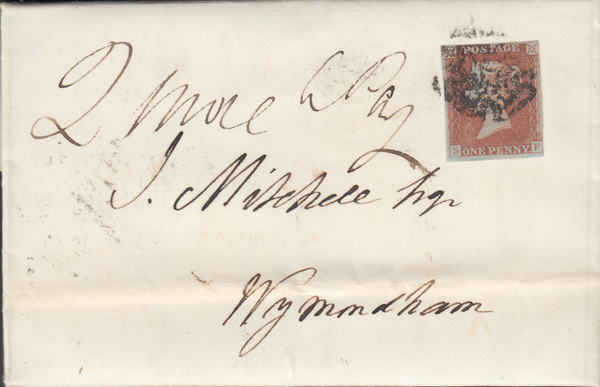 POSTAGE
S ONE PENNY F
2 More to Pay
J. Mitchell Esqr
Wymondham